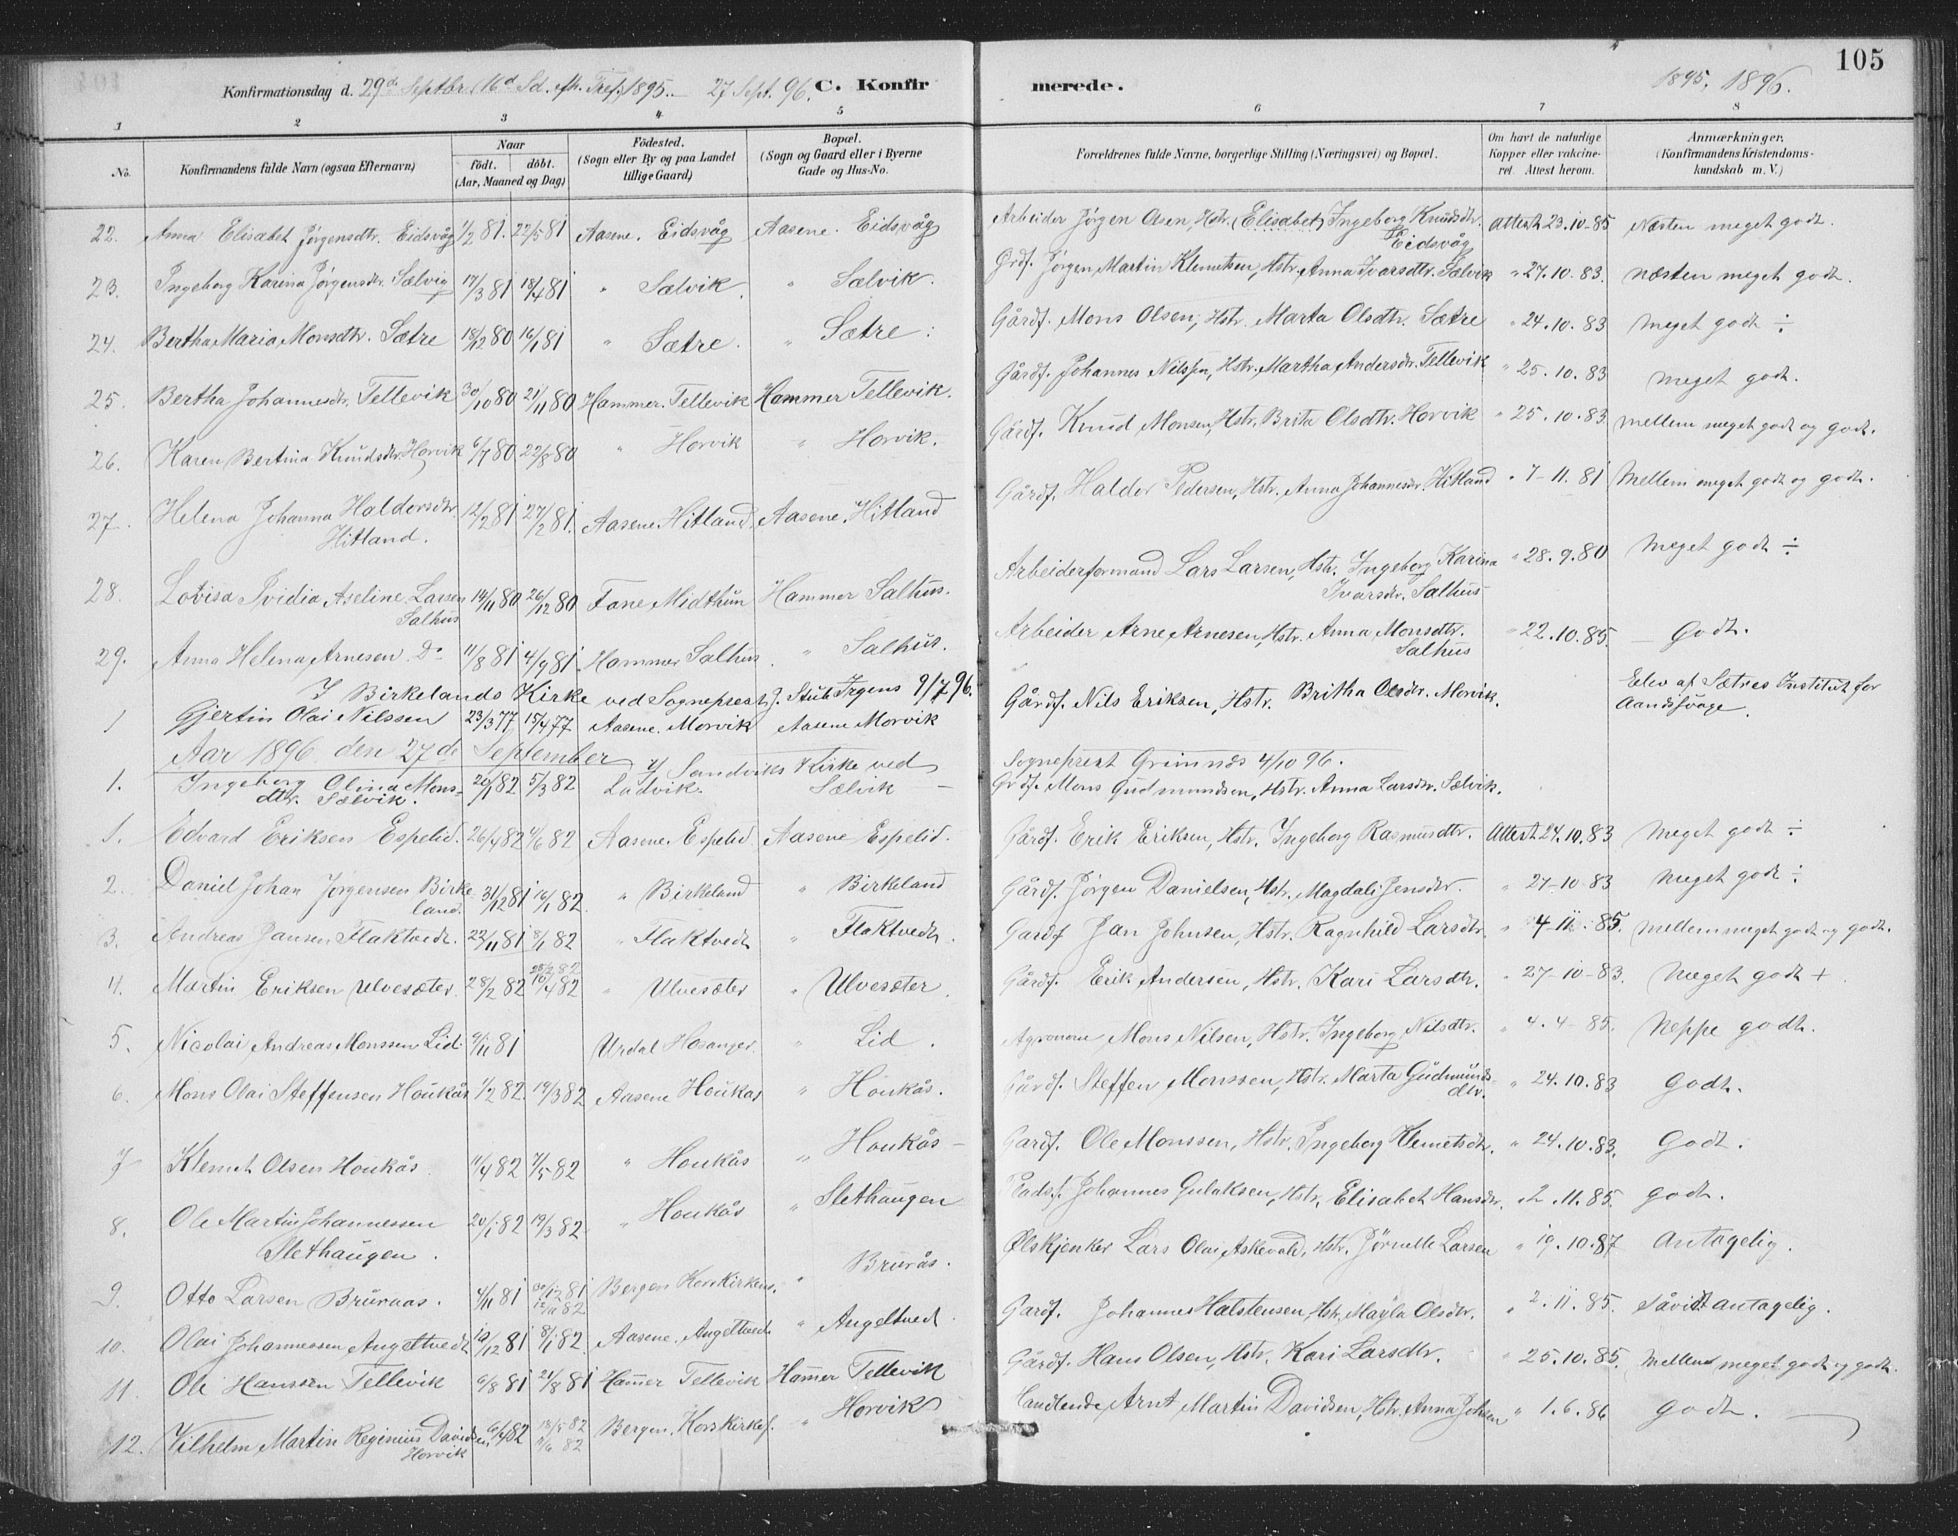 105
Konfirmationsdag d. 29de Septbr (16d Sd. eft. Tref.) 1895. 27 Sept. 96. C. Konfirmerede. 1895, 1896.
1 2 3 4 5 6 7 8
No. Konfirmandens fulde Navn (ogsaa Efternavn) Naar födt. döbt. (Aar, Maaned og Dag) Födested. (Sogn eller By og paa Landet tillige Gaard) Bopæl. (Sogn og Gaard eller i Byerne Gade og Hus-No. Forældrenes fulde Navne, borgerlige Stilling (Næringsvei) og Bopæl. Om havt de naturlige Kopper eller vakcineret. Attest herom. Anmærkninger. (Konfirmandens Kristendomskundskab m. V.)
22. Anna Elisabet Jörgensdtr. Eidsvåg 1/2 81. 22/5 81 Aasene. Eidsvåg Aasene. Eidsvåg Arbeider Jörgen Olsen, Hstr. (Elisabet) Ingeborg Knudsdtr. Eidsvåg Attest 23.10-85 Næsten meget godt.
23. Ingeborg Karina Jörgensdr. Sælvig 17/3 81 18/4 81 " Sælvik " Sælvik. Grdf. Jörgen Martin Klemetsen, Hstr. Anna Ivarsdtr. Sælvik " 27.10.83. næsten meget godt.
24. Bertha Maria Monsdtr. Sætre 18/12 80 16/1 81 " Sætre. " Sætre: Gårdf. Mons Olsen, Hstr. Marta Olsdtr. Sætre " 24.10.83 meget godt ÷
25. Bertha Johannesdr. Tellevik 30/10 80 21/11 80 Hammer. Tellevik Hammer Tellevik. Gårdf. Johannes Nilssen, Hstr. Martha Andersdr. Tellevik " 25.10.83 meget godt.
26. Karen Bertina Knudsdr. Horvik 6/7 80 22/8 80 " Horvik " Horvik. Gårdf. Knud Monsen, Hstr. Brita Olsdtr. Horvik " 25.10.83 mellem meget godt og godt.
27. Helena Johanna Haldorsdr. Hitland. 12/2 81 27/2 81. Aasene. Hitland Aasene. Hitland Gårdf. Haldor Pedersen, Hstr. Anna Johannesdr. Hitland " 7-11.81 Mellem meget godt og godt.
28. Lovisa Ividia Aseline Larsen Salhus 14/11 80 26/12 80 Fane Midthun Hammer Salhus. Arbeiderformand Lars Larsen, Hstr. Ingeborg Karina Ivarsdr. Salhus " 28.9.80 Meget godt ÷
29. Anna Helena Arnesen Do 11/8 81 4/9 81 Hammer Salhus. " Salhus. Arbeider Arne Arnesen, Hstr. Anna Monsdtr. Salhus " 22.10.85. Godt.
I Birkelands Kirke ved Sognepræst J. Stub Irgens 9/7 96.
1 Gjertin Olai Nilssen 23/3 77 15/4 77 Aasene. Morvik Aasene Morvik Gårdf. Nils Eriksen, Hstr. Britha Olsdr. Morvik. Elev af Sætres Institut for Aandssvage.
Aar 1896 den 27de September
i Sandviks Kirke ved Sogneprest Grimnæs 4/10 96.
1. Ingeborg Olina Monsdtr. Sælvik. 20/1 82 5/3 82 Ladvik. Sælvik Grdf. Mons Gudmundsen, Hstr. Anna Larsdr. Sælvik.
1. Edvard Eriksen Espelid. 26/4 82 4/6 82 Aasene. Espelid Aasene Espelid. Gårdf. Erik Eriksen, Hstr. Ingeborg Rasmusdtr. Attest 24.10.83 Meget godt ÷
2. Daniel Johan Jörgensen Birkeland. 31/12 81 16/1 82. " Birkeland " Birkeland Gårdf. Jörgen Danielsen, Hstr. Magdali Jensdtr. " 27-10-83 Meget godt ÷
3. Andreas Jansen Flaktvedt. 22/11 81 8/1 82 " Flaktvedt " Flaktvedt. Gardf Jan Johnsen, Hstr. Ragnhild Larsdtr. " 4-11.85. Mellem meget godt og godt.
4. Martin Eriksen Ulvesæter. 28/2 82 10/4 82 " Ulvesæter " Ulvesæter. Gårdf. Erik Andersen, Hstr. Kari Larsdtr. " 27-10-83. Meget godt +
5. Nicolai Andreas Monssen Lid. 9/11 81 Urdal Hosanger. " Lid. Agronom Mons Nilsen, Hstr. Ingeborg Nilsdtr. " 4.4-85. Neppe godt.
6. Mons Olai Steffensen Houkås 1/2 82. 19/3 82 Aasene Houkas " Houkås. Gårdf. Steffen Monssen, Hstr. Marta Gudmundsdtr. " 24.10.83 Godt.
7 Klemet Olsen Houkås. 11/4 82 7/5 82 " Houkås " Houkås Gardf. Ole Monssen, Hstr. Ingeborg Klemetsdtr. " 24.10.83. Godt.
8. Ole Martin Johannessen Slethaugen. 20/1 82 19/3 82 " Houkås " Slethaugen Johannes Gulaksen, Hstr. Elisabet Hansdr. " 2.11.85. godt.
9. Otto Larsen Bruraas. 4/11 81 30/12 81 Bergen Korskirken. " Brurås. Ølskjenker Lars Olai Askevold, Hstr. Jörnette Larsen " 19.10.87 Antagelig.
10. Olai Johannessen Angeltvedt 10/12 81 8/1 82. Aasene. Angeltvedt " Angeltved. Gardf. Johannes Halstensen, Hstr. Magla Olsdtr. " 2.11.85. Såvidt antagelig.
11. Ole Hanssen Tellevik 6/8 81 21/8 81 Hamer Tellevik Hamer Tellevik Gårdf. Hans Olsen, Hstr. Kari Larsdtr. " 25.10.85. Mellem meget godt og godt.
12. Vilhelm Martin Reginius Davidsen Horvik 6/4 82 18/5 82 Bergen. Korskirkes. " Horvik Landhandlende Arnt Martin Davidsen, Hstr. Anna Johsen " 1.6.86 godt.